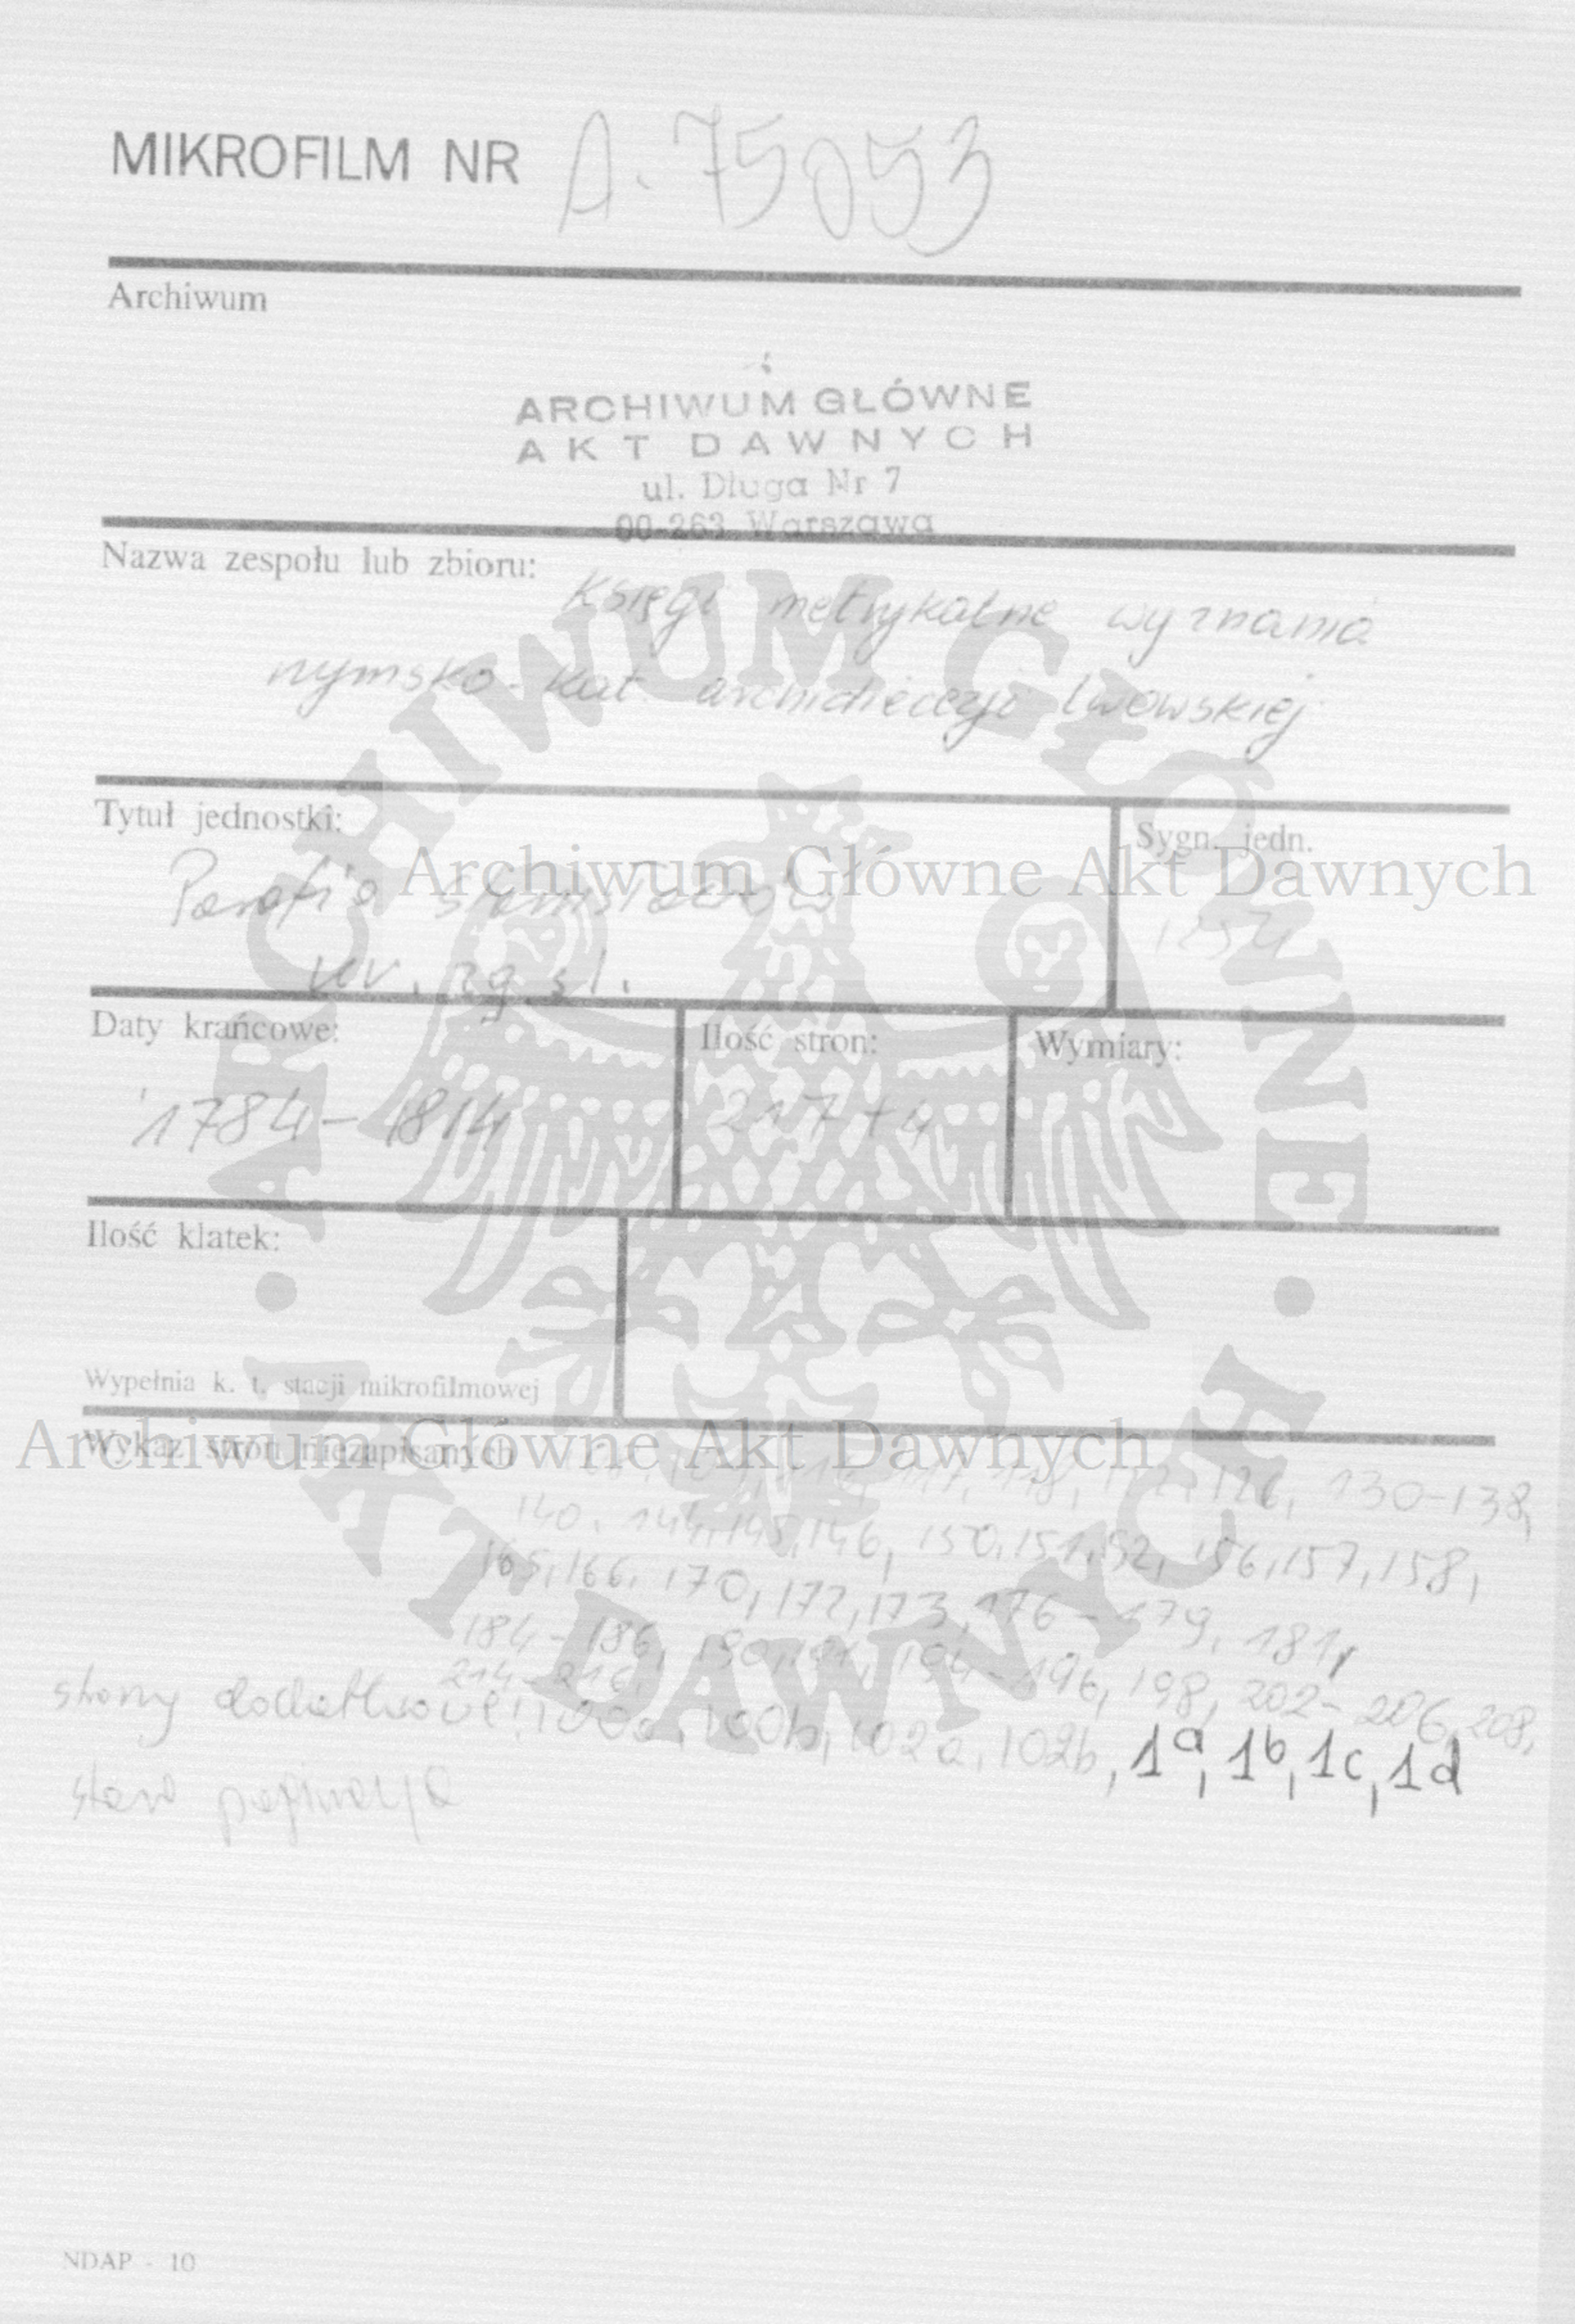 MIKROFILM NR A-75053
Archiwum
ARCHIWUM GŁÓWNE
AKT DAWNYCH
ul. Długa Nr 7
00-263 Warszawa
Nazwa zespołu lub zbioru:
Księgi metrykalne wyznania
rzymsko-kat. archidiecezji lwowskiej
Tytuł jednostki:
Sygn. jedn.
Archiwum Główne Akt Dawnych
Parafia Stanisławów
1254
ur. zg. śl.
Daty krańcowe:
Ilość stron:
Wymiary:
1784-1814
217+4
Ilość klatek:
Wypełnia k. t. stacji mikrofilmowej
Archiwum Główne Akt Dawnych
Wykaz stron niezapisanych
117, 118, 122, 126, 130-138,
140, 144, 145, 146, 150, 151, 152, 156, 157, 158,
165, 166, 170, 172, 173, 176-179, 181,
184-186, 190, 191, 194-196, 198, 202-206, 208,
214-216
strony dodatkowe: 100a, 100b, 102a, 102b, 1a, 1b, 1c, 1d
stara paginacja
NDAP - 10
ARCHIWUM GŁÓWNE
AKT DAWNYCH